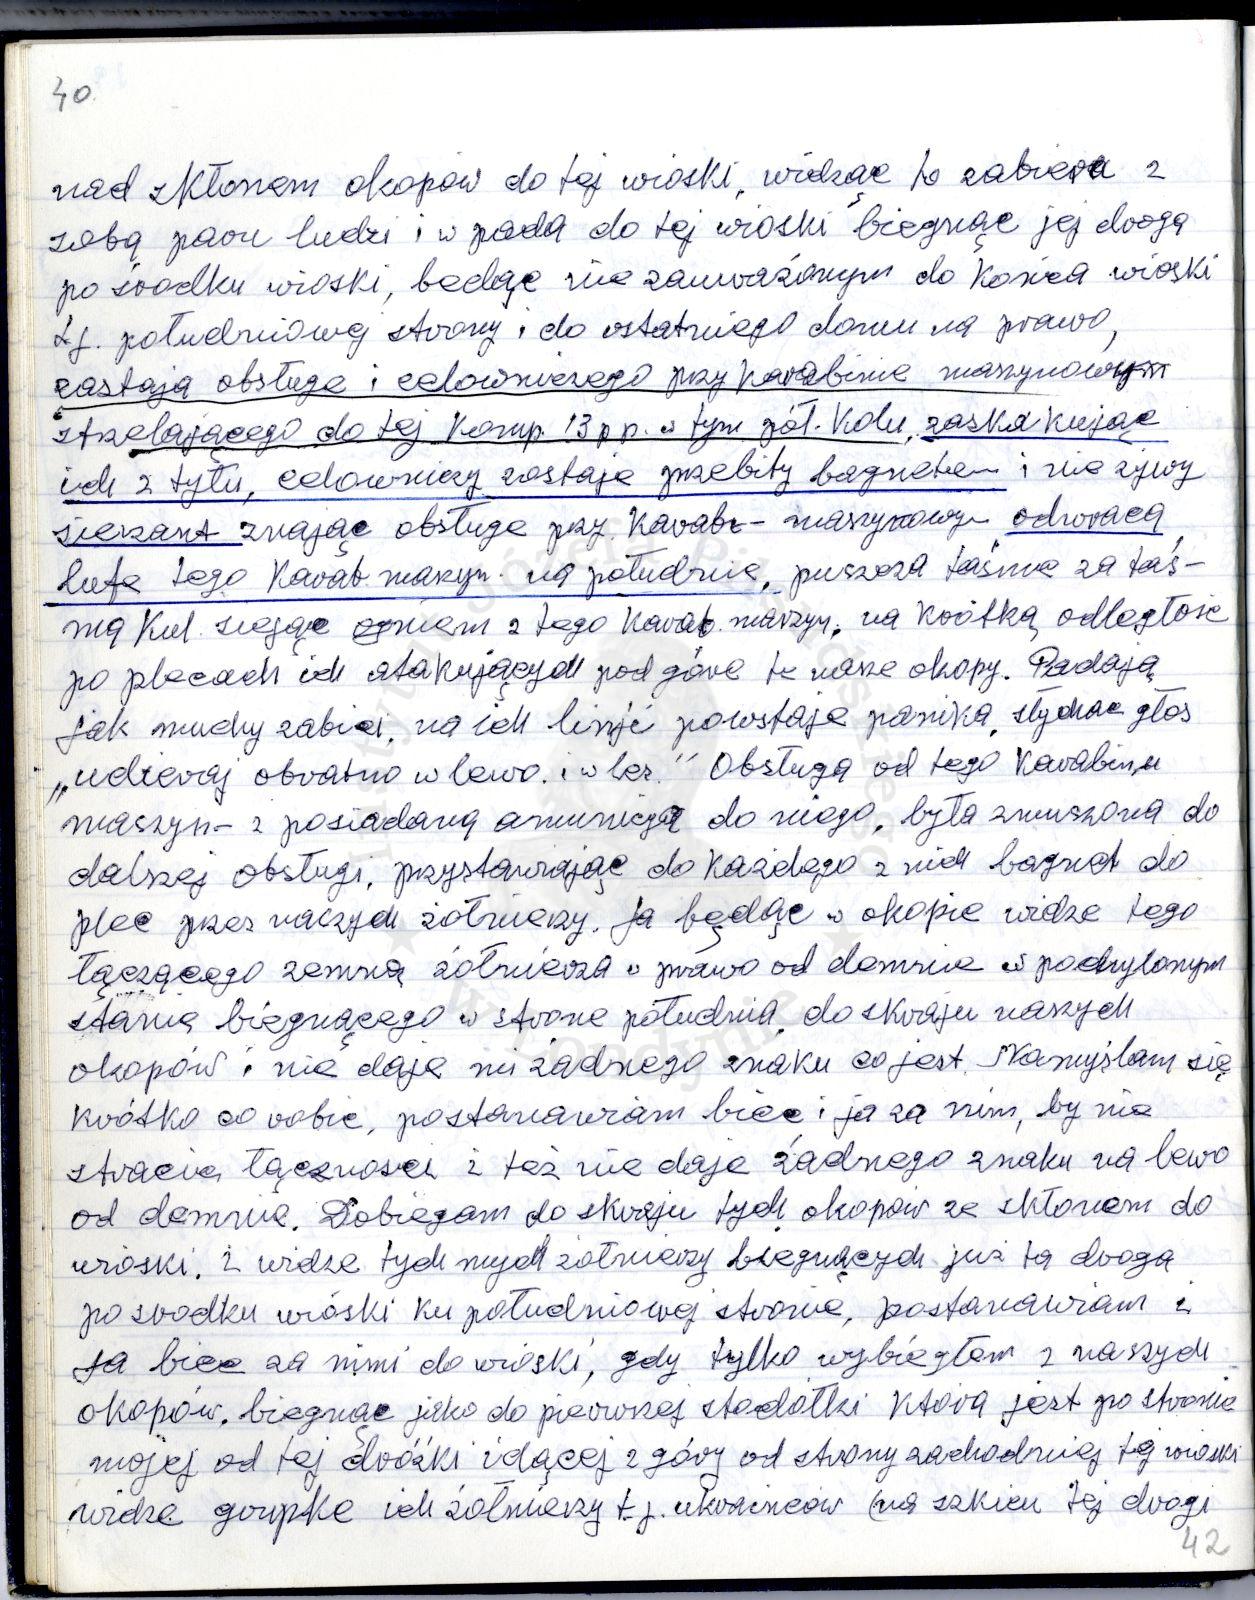 40.
nad skłonem okopów do tej wioski, widząc to zabiera z
sobą paru ludzi i w pada do tej wioski biegnąc jej drogą
po środku wioski, będąc nie zauważonym do końca wioski
t.j. południowej strony i do ostatniego domu na prawo,
zastają obsługe i celowniczego przy karabinie maszynowym
strzelającego do tej Komp. 13 p p. w tym pół. Kolu, zaskakując
ich z tyłu, celowniczy zostaje przebity bagnetem i nie żywy
sierżant znając obsługe przy Karab- maszynowym odwraca
lufe tego Karab. maszyn. na południe, puszcza taśme za taś-
mą Kul. siejąc ogniem z tego Karab. maszyn. na krótką odległość
po plecach ich atakujących pod góre te nasze okopy. Padają
jak muchy zabici, na ich linji powstaje panika, słychac głos
„udieraj obratno w lewo. i w les." Obsługa od tego Karabinu
maszyn- z posiadaną amunicją do niego, była zmuszona do
dalszej obsługi, przystawiając do każdego z nich bagnet do
plec przez naszych żołnierzy. Ja będąc w okopie widze tego
łączącego zemną żołnierza w prawo od demnie w podchylonym
stanie biegnącego w strone południa, do skraju naszych
okopów i nie daje mi żadnego znaku co jest. Namyślam się
krótko co robic, postanawiam biec i ja za nim, by nie
stracic łączności i też nie daje żadnego znaku na lewo
od demnie. Dobiegam do skraju tych okopów ze skłonem do
wioski. i widze tych mych żołnierzy biegnących już tą drogą
po srodku wioski ku południowej stronie, postanawiam i
ja biec za nimi do wioski, gdy tylko wybiegłem z naszych
okopów. biegnąc jako do pierwszej stodółki która jest po stronie
mojej od tej dróżki idącej z góry od strony zachodniej tej wioski
widze grupke ich żołnierzy t.j. ukraińców (na szkicu tej drogi
42